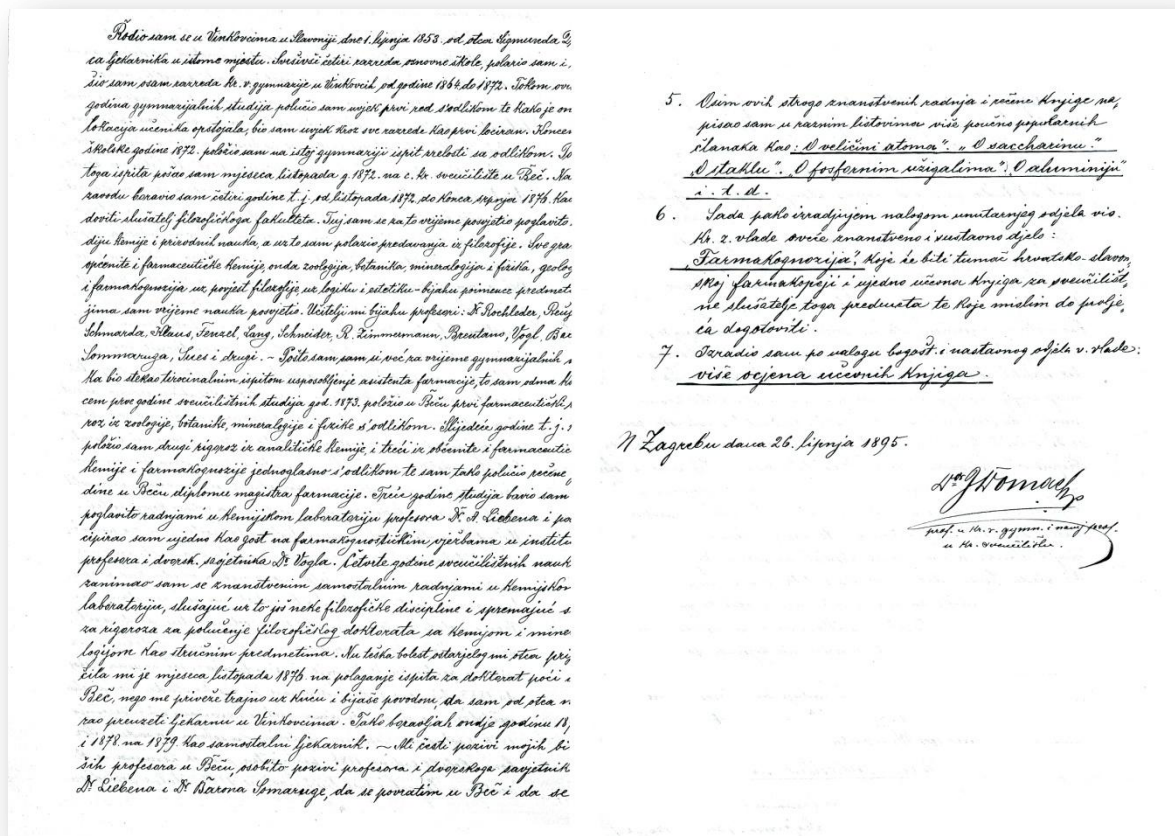 Rodio sam se u Vinkovcima u Slavoniji dne 1. lipnja 1853. od otca Sigmunda D,
ca ljekarnika u istome mjestu. Svršivši četiri razreda osnovne škole, polazio sam i,
šio sam osam razreda kr. v. gymnazije u Vinkovcih od godine 1864. do 1872. Tokom ov
godina gymnazijalnih studija polučio sam uvjek prvi red s'odlikom te kako je on
lokacija učenika opstojala, bio sam uvjek kroz sve razrede kao prvi lociran. Koncem
školske godine 1872. položio sam na istoj gymnaziji ispit zrelosti sa odlikom. Po
toga ispita pošao sam mjeseca listopada g. 1872. na c. kr. sveučilište u Beč. Na
zavodu boravio sam četiri godine t. j. od listopada 1872. do konca srpnja 1876. kao
doviti slušatelj filozofičkoga fakulteta. Tuj sam se za to vrijeme posvjetio poglavito
diju kemije i prirodnih nauka, a uz to sam polazio predavanja iz filozofije. Sve gra
općenite i farmaceutičke kemije, onda zoologija, botanika, mineralogija i fizika, geolog
i farmakognozija uz povjest filozofije, uz logiku i estetiku – bijahu poimence predmet
jima sam vrijeme nauka posvjetio. Učitelji mi bijahu profesori: Dr. Rochleder, Reus
Schmarda, Klaus, Fenzel, Lang, Schneider, R. Zimmermann, Brentano, Vogl, Ba
Sommaruga, Sues i drugi. – Pošto sam sam si već za vrijeme gymnazijalnih
ka bio stekao tirocinalnim ispitom usposobljenje asistenta farmacije, to sam odma k
cem prve godine sveučilištnih studija god. 1873. položio u Beču prvi farmaceutički
roz iz zoologije, botanike, mineralogije i fizike s'odlikom. Slijedeće godine t. j. 1
položio sam drugi rigoroz iz analitičke kemije, i treći iz općenite i farmaceutič
kemije i farmakognozije jednoglasno s'odlikom te sam tako polučio rečene
dine u Beču diplomu magistra farmacije. Treće godine studija bavio sam
poglavito radnjami u kemijskom laboratoriju profesora Dr. A. Liebena i pa
cipirao sam ujedno kao gost na farmakognostičkim vježbama u institu
profesora i dvorsk. savjetnika Dr. Vogla. Četvrte godine sveučilištnih nauk
zanimao sam se znanstvenim samostalnim radnjami u kemijskom
laboratoriju, slušajuć uz to još neke filozofičke discipline i spremajuć s
za rigoroza za polučenje filozofičkog doktorata sa kemijom i mine
logijom kao stručnim predmetima. Nu teška bolest ostarjelog mi otca prie
čila mi je mjeseca listopada 1876. na polaganje ispita za doktorat poći
Beč, nego me priveže trajno uz kuću i bijaše povodom, da sam od otca m
rao preuzeti ljekarnu u Vinkovcima. Tako boravljah ondje godinu 18,
i 1878. na 1879. kao samostalni ljekarnik. – Al česti pozivi mojih bi
ših profesora u Beču, osobito pozivi profesora i dvorskoga savjetnik
Dr. Liebena i Dr. Barona Somaruge, da se povratim u Beč i da se
5. Osim ovih strogo znanstvenih radnja i rečene knjige na,
pisao sam u raznim listovima više poučno popularnih
članaka kao: "O veličini atoma". "O saccharinu".
"O staklu". "O fosfornim užigalima". "O aluminiju"
i. t. d.
6. Sada pako izradjujem nalogom unutarnjeg odjela vis.
kr. z. vlade sveće znanstveno i sustavno djelo:
"Farmakognozija", koje će biti tumač hrvatsko-slavon,
skoj farmakopeji i ujedno učevna knjiga za sveučilišt,
ne slušatelje toga predmeta te koje mislim do prolje,
ća dogotoviti.
7. Izradio sam po nalogu bogošt. i nastavnog odjela v. vlade:
više ocjena učevnih knjiga.
U Zagrebu dana 26. lipnja 1895.
Dr. G Domac
prof. u kr. v. gymn. i prof.
u kr. sveučilištu.